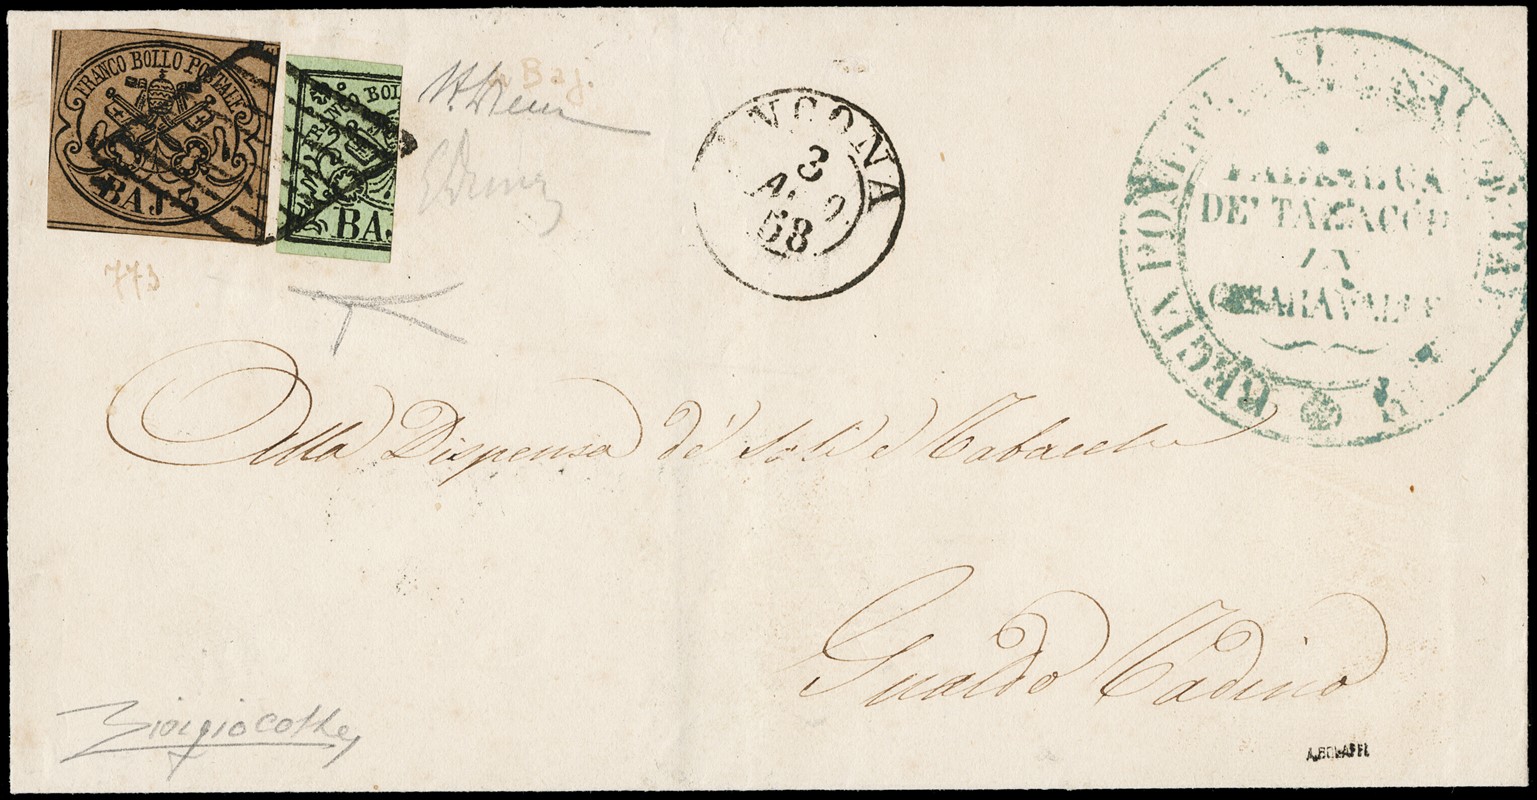 FRANCO BOLLO POSTALE
BAJ. 3
BOL
BA.
Baj.
773
ANCONA
3
AGO
58
REGIA PONTIF.
FABBRICA
DE' TABACCHI
IN
CHIARAVALLE
Alla Dispensa de' Sali e Tabacchi
Gualdo Tadino
A. BOLAFFI